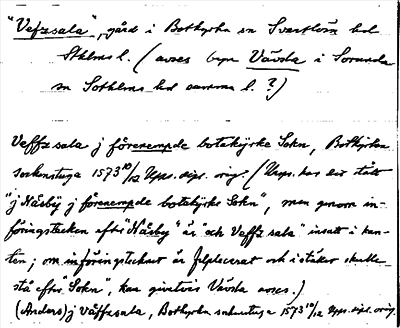 "Vefzsala", gård i Botkyrka sn Svartlösa hd
Sthlms l. (avses byn Vävda i Sorunda
sn Sothlms hd samma l. ?)
Veffz sala j förenempde botekyrke Sokn, Botkyrka
sockenstuga 1573 10/12 Upps. dipl. orig. (Urspr. har där stått
"j Näsby j förenempde botekyrke Sokn", men genom in-
föringstecken efter "Näsby" är "och Veffz sala" insatt i kan-
ten; om införingstecknet är felplacerat och i stället skulle
stå efter "Sokn", kan givetvis Vävda avses.)
(Anders) j Väffzsala, Botkyrka sockenstuga 1573 10/12 Upps. dipl. orig.